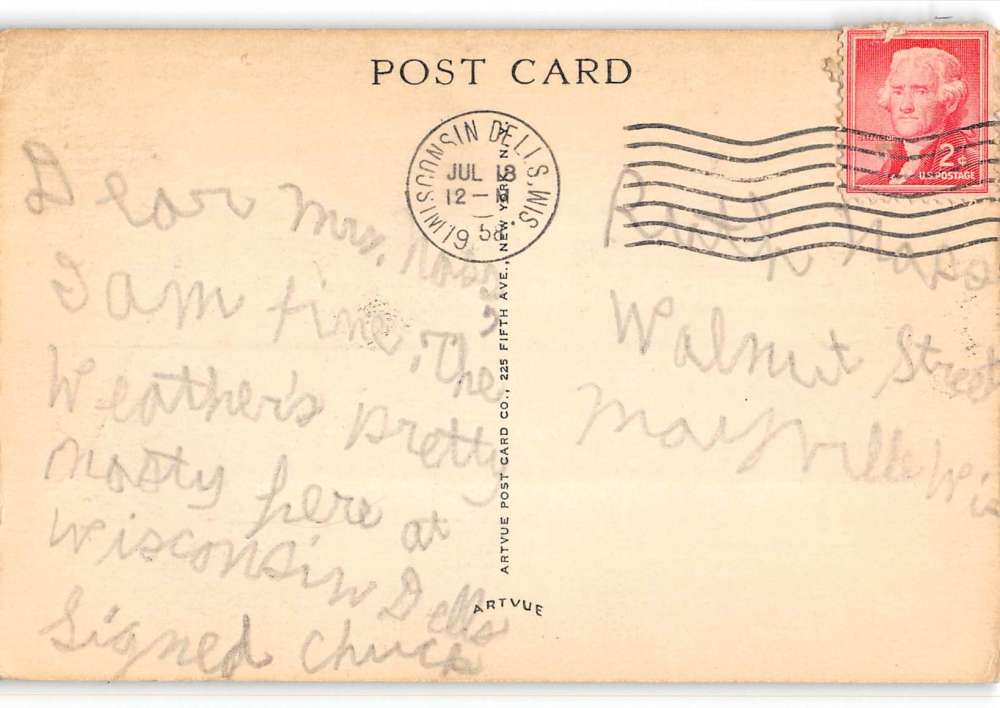 POST CARD
WISCONSIN DELLS, WIS.
JUL
12 -
1958
2¢
U.S. POSTAGE
Dear Mrs.
I am fine, The
Weather's pretty
nasty here at
Wisconsin Dells
Signed Chuck
ARTVUE POST CARD CO., 225 FIFTH AVE., NEW YORK N.Y.
ARTVUE
Ruth
Walnut Street
Mayville Wis